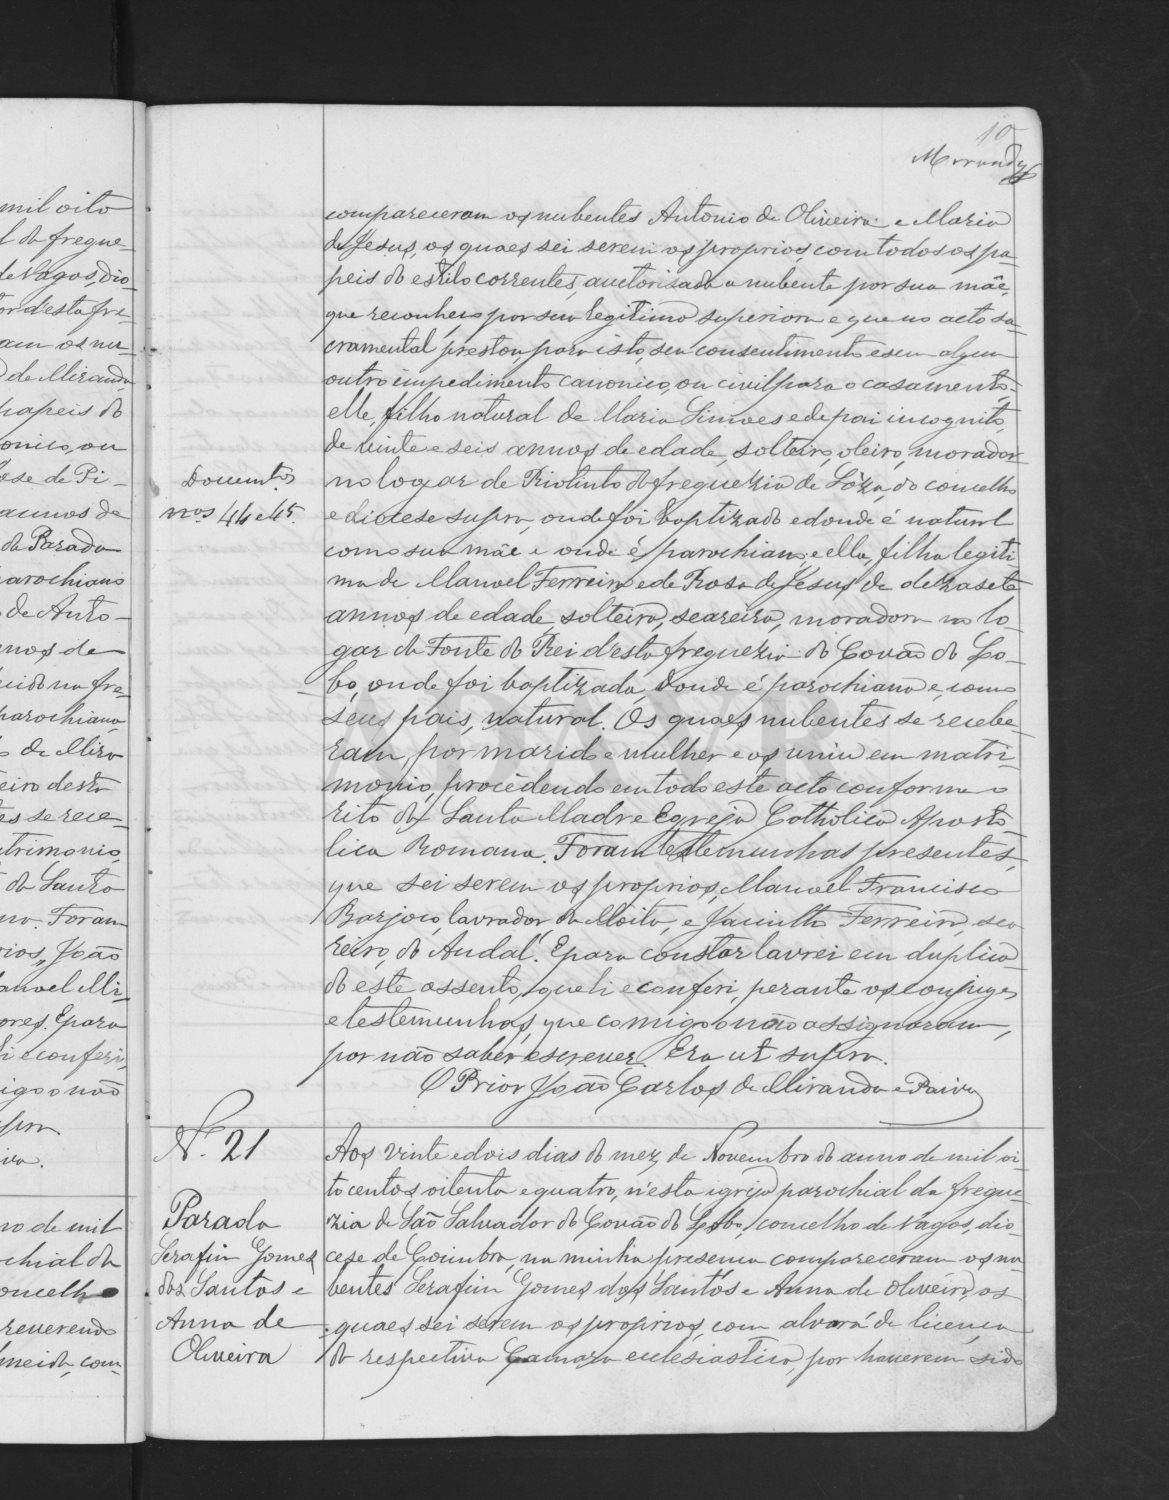 10
Miranda
compareceram os nubentes Antonio de Oliveira e Maria
de Jesus, os quaes sei serem os proprios, com todos os pa-
peis do estilo correntes, auctorisada a nubente por sua mãe,
que reconheço por sua legitima superiora e que no acto sa-
cramental prestou para isto, seu consentimento e sem algum
outro impedimento canonico, ou civil para o casamento:
elle, filho natural de Maria Simões e de pai incognito,
de vinte e seis annos de edade, solteiro, oleiro, morador
no logar de Riotinto da freguezia de Sóza, do concelho
e diocese supra, onde foi baptizado e donde é natural
como sua mãe e onde é parochiano; e ella, filha legiti
ma de Manoel Ferreira e de Rosa de Jesus, de dezasete
annos de edade, solteira, seareira, moradora no lo-
gar da Fonte do Rei d'esta freguezia do Covão do Lo-
bo, onde foi baptizada, donde é parochiana e, como
seus pais, natural. Os quaes nubentes se recebe-
ram por marido e mulher e os uniu em matri-
monio, procedendo em todo este acto conforme o
rito da Santa Madre Egreja Catholica Aposto-
lica Romana. Foram testemunhas presentes,
que sei serem os proprios, Manoel Francisco
Barjoco, lavrador, da Moita, e Jacintho Ferreira, sea-
reiro, do Andal. E para constar lavrei em duplica-
do este assento, que li e conferi, perante os conjuges
e testemunhas, que comigo o não assignaram,
por não saber escrever. Era ut supra.
O Prior João Carlos de Miranda e Paiva
Documentos
nos 44 e 45.
N.º 21
Parada
Serafim Gomes
dos Santos e
Anna de
Oliveira
Aos vinte e dois dias do mez de Novembro do anno de mil oi-
tocentos oitenta e quatro, n'esta igreja parochial da fregue-
zia de São Salvador do Covão do Lobo, concelho de Vagos, dio-
cese de Coimbra, na minha presença compareceram os nu-
bentes Serafim Gomes dos Santos e Anna de Oliveira, os
quaes sei serem os proprios, com alvará de licença
da respectiva Camara ecclesiastica, por haverem sido
mil oito
l da fregue
de Vagos, dio-
or d'esta fre-
am os nu-
de Miranda
papeis do
onico, ou
ose de Pi-
annos de
da Parada
arochiano
de Anto-
nnos de
na fre-
parochiana,
de Mira
eiro desta
es se rece-
trimonio,
da Santa
Foram
rios, João
anoel Mi-
ores. E para
li e conferi,
igo o não
supra
iva.
no de mil
chial da
oncelho
reverendo
meida, com-